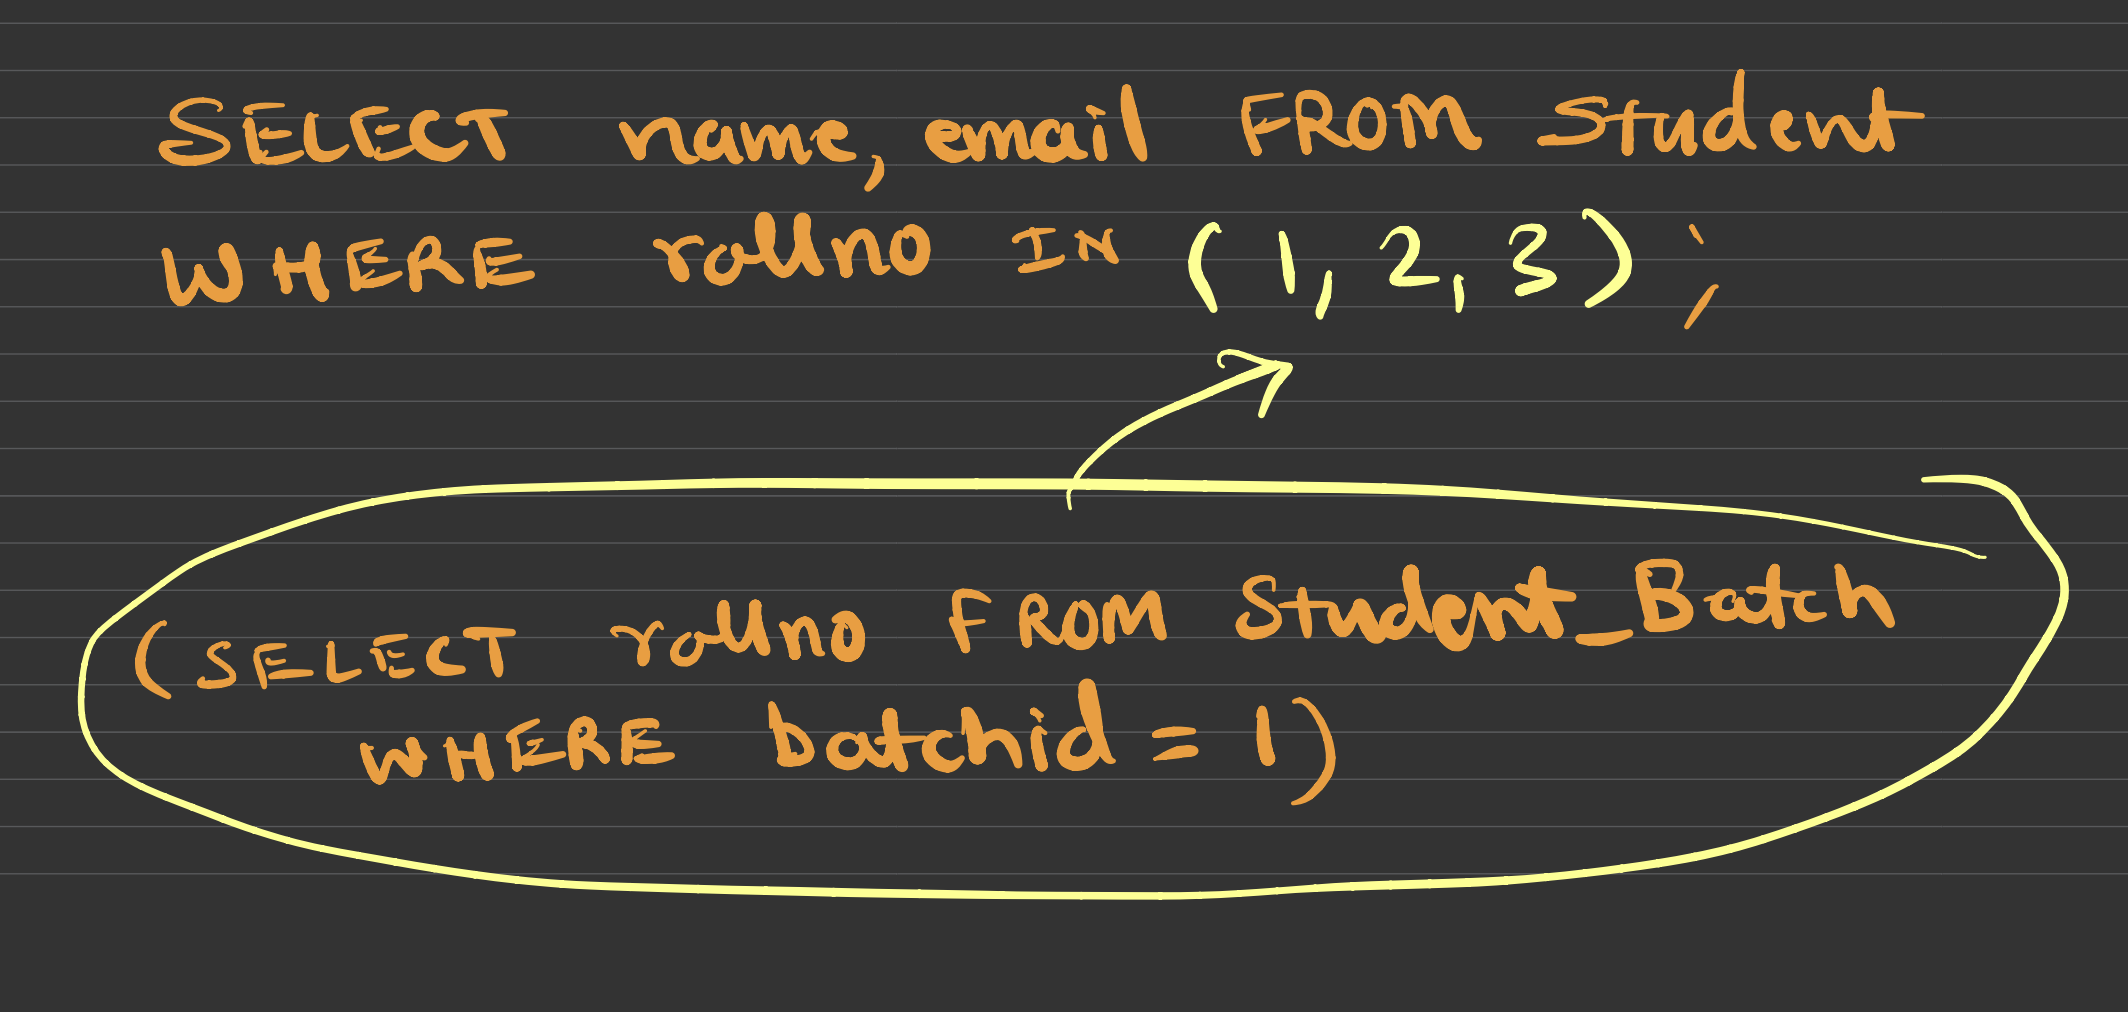 SELECT name, email FROM Student
WHERE rollno IN (1, 2, 3);
(SELECT rollno FROM Student_Batch
WHERE batchid = 1)